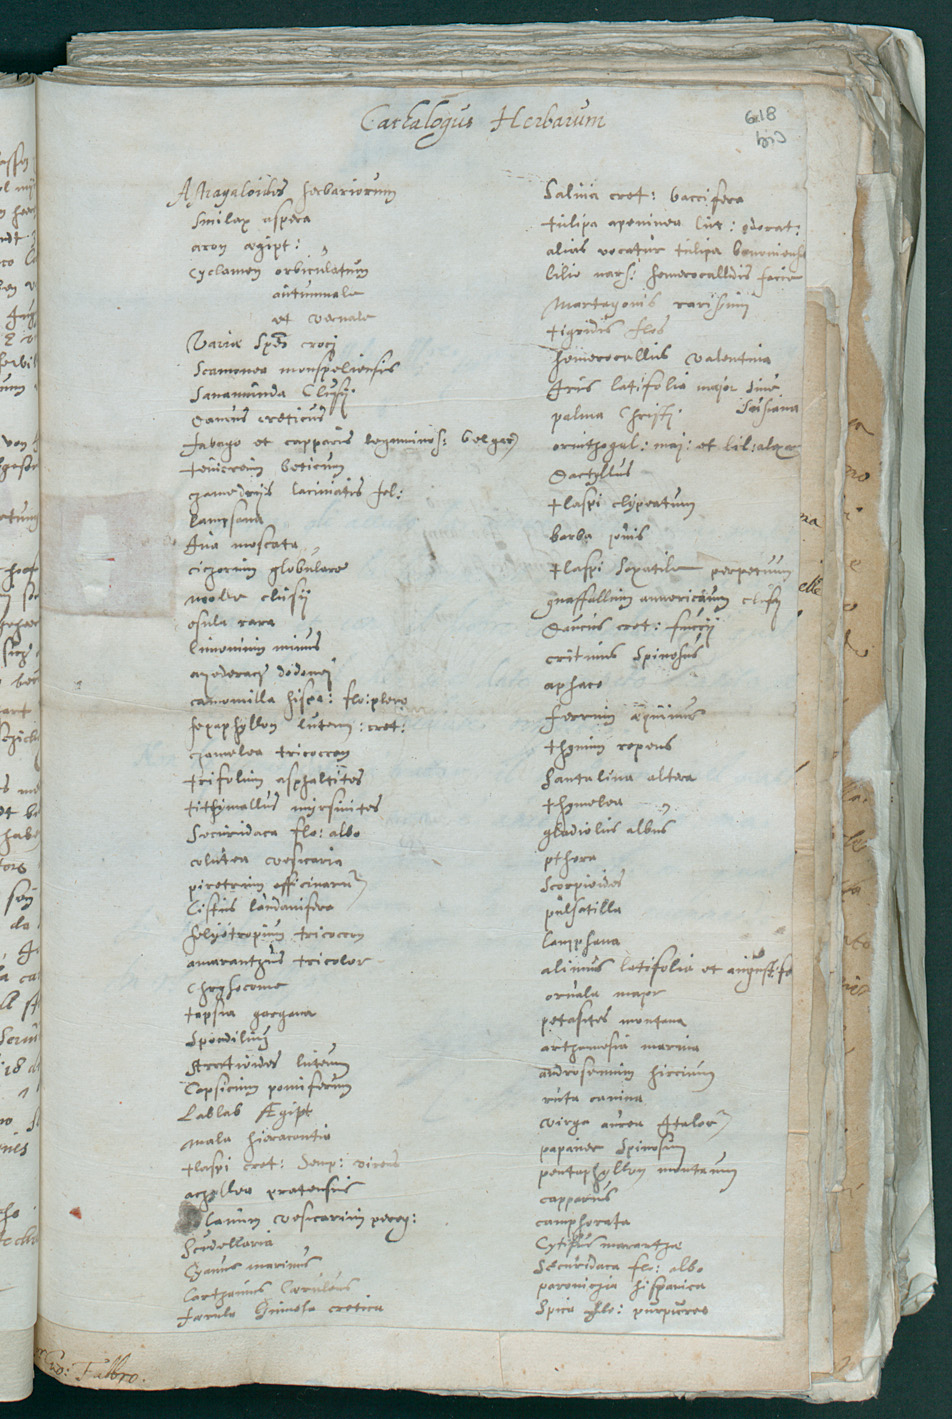 Cathalogus Herbarum
618
bis
Astragaloides herbariorum
Smilax aspera
aron ægipt:
Cyclamen orbiculatum
autumnale
et vernale
Variæ Spēs croci
Scamonea monspeliensis
Sanamunda Clusij
Daucus creticus
fabago et capparis leguminos: belgar
teucrium beticum
chamedrijs laciniatis fol:
Lampsana
Iva moscata
cichorium globulare
molve clusij
esula rara
limonium minus
agederach dodonej
camomilla hispa: flo: pleno
hepaphyllon luteum: cret:
chamelea tricoccon
trifolium asphaltites
tithimallus mijrsinites
Securidaca flo: albo
colutea vesicaria
piretrum officinarū
Cistus laudanifera
helyotropium tricoccon
amaranthus tricolor
Chrysocome
tapsia gargana
Spondilium
Stratioides luteum
Capsicum pomiferum
Lablab Ægipt
Mala hieracontia
tlaspi cret: Semp: virens
achillea pratensis
lanum vesicarium pereg:
Scudellaria
Cyanus marinus
Carthamus Cœruleus
ferula cretica
Salvia cret: baccifera
tulipa apeninea lut: odorat:
alias vocatur tulipa bononiensis
lilio nars: hemerocallidis facie
Martagonis rarissimi
tigridis flos
hemerocallis valentina
Iris latifolia major sive
palma Christi Susiana
ornithogal: maj: et lil: alexa
Dactyllus
tlaspi clypeatum
barba jovis
tlaspi Saxatile perpetuum
gnaffallium americanum clusij
Daucus cret: fuccij
critmus Spinosus
aphace
ferrum æquinus
thymum repens
Santalina altera
thymelea
gladiolus albus
pthora
Scorpioides
pulsatilla
Lampsana
alimus latifolia et angustifo
orvala major
petasites montana
arthemesia marina
androsemum hircinum
ruta canina
virga aurea Italor
papaver Spinosum
pentaphyllon montanum
capparus
camphorata
Cytisus marantha
Securidaca flo: albo
paronichia hispanica
Spica flo: purpureo
Fabro.